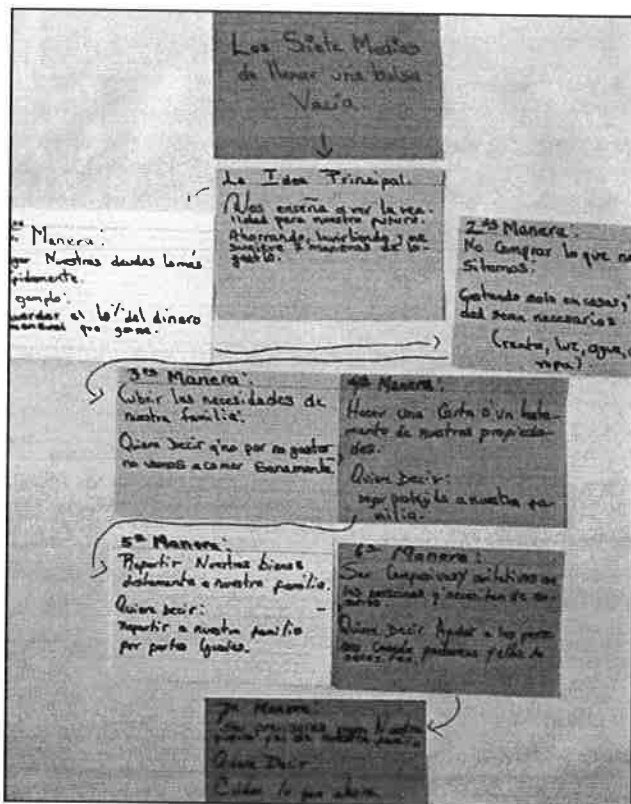 Los Siete Medios
de llenar una bolsa
Vacía.
La Idea Principal.
Nos enseña a ver la rea-
lidad para nuestro futuro.
Ahorrando, invirtiendo y me
sugiere 7 maneras de lo-
Manera:
Nuestras deudas lo más
pidamente.
gemplo:
uardar el 10% del dinero
que gane.
2da Manera:
No Comprar lo que ne
sitemos.
Gastando solo en cosas,
dad sean necesarios
(renta, luz, agua,
ropa).
3ra Manera:
Cubrir las necesidades de
nuestra familia.
Quiere Decir q' no por no gastar
no vamos a comer Sanamente.
4ta Manera:
Hacer una Carta o' un testa-
mento de nuestras propieda-
des.
Quiere Decir:
dejar protejida a nuestra fa-
milia.
5ta Manera:
Repartir Nuestros bienes
a nuestra familia.
Quiere Decir:
repartir a nuestra familia
por partes Iguales.
6ta Manera:
Ser Compasivos y
las personas q' necesitan de
Quiere Decir Ayudar a las perso-
nas Cuando podamos y ellas lo
7ma Manera:
Quiere Decir
Cuidar lo que ahorra